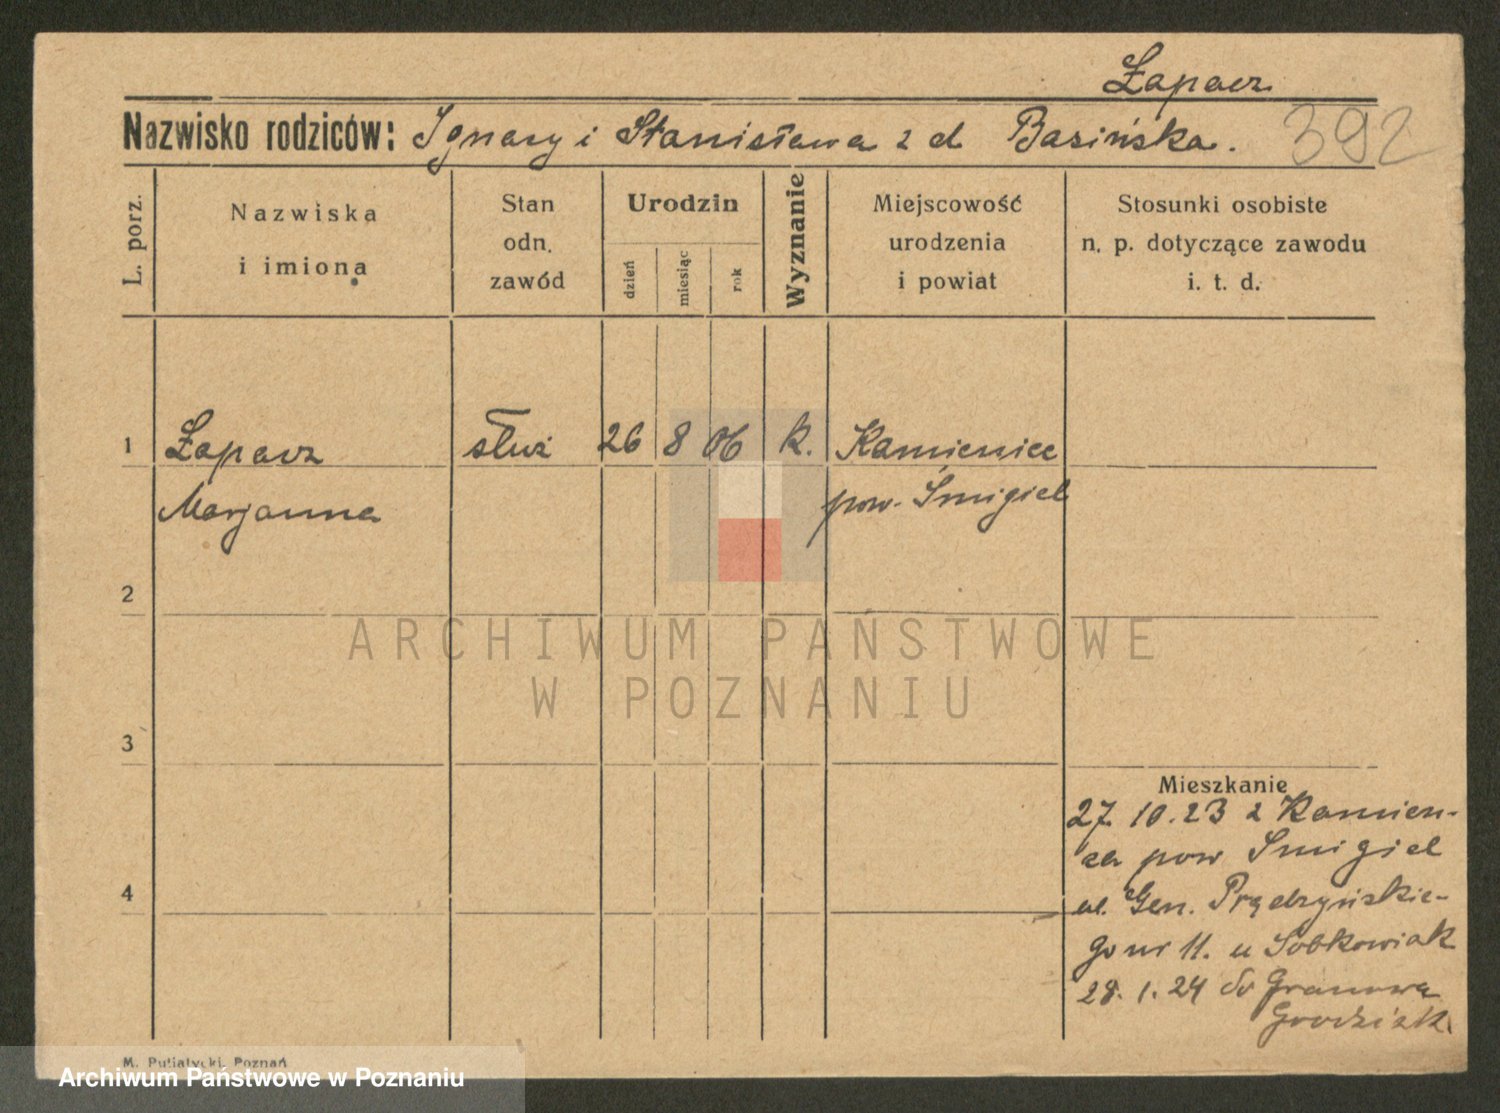 Łapacz
Nazwisko rodziców: Ignacy i Stanisława z d. Basińska.
392
L. porz.
Nazwiska
i imiona
Stan
odn.
zawód
Urodzin
dzień
miesiąc
rok
Wyznanie
Miejscowość
urodzenia
i powiat
Stosunki osobiste
n. p. dotyczące zawodu
i. t. d.
1 Łapacz służ 26 8 06 k. Kamieniec
Marjanna pow. Śmigiel
2
ARCHIWUM PAŃSTWOWE
W POZNANIU
3
Mieszkanie
27. 10. 23 z Kamień-
ca pow Śmigiel
4
ul. Gen. Prądzyńskie-
go nr 11. u Sobkowiak
28. 1. 24 do Granowa
Grodzisk
M. Putiatycki, Poznań
Archiwum Państwowe w Poznaniu